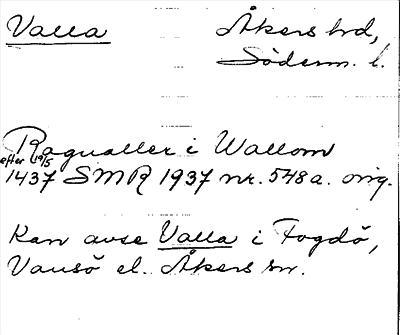 Valla
Åkers hrd,
Söderm. l.
Ragualler i Wallom
efter 19/5
1437 SMR 1937 nr. 548 a. orig.
Kan avse Valla i Fogdö,
Vansö el. Åkers sn.